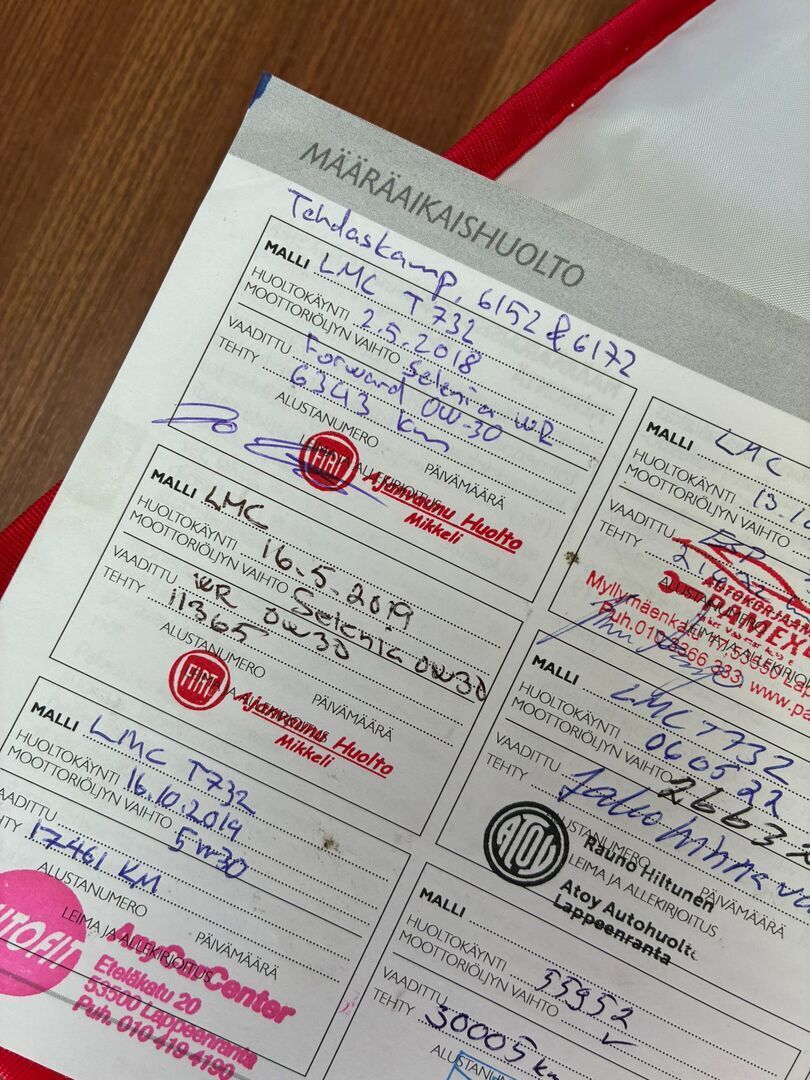 MÄÄRÄAIKAISHUOLTO
Tehdaskamp. 6152 & 6172
MALLI LMC T732
HUOLTOKÄYNTI 2.5.2018
MOOTTORIÖLJYN VAIHTO Selenia WR
VAADITTU Forward 0W-30
TEHTY 6343 km
ALUSTANUMERO
LEIMA JA ALLEKIRJOITUS PÄIVÄMÄÄRÄ
FIAT Ajanvaunu Huolto
Mikkeli
MALLI LMC
HUOLTOKÄYNTI 16.5.2019
MOOTTORIÖLJYN VAIHTO Selenia 0W30
VAADITTU WR 0W30
TEHTY 11365
ALUSTANUMERO
LEIMA JA ALLEKIRJOITUS PÄIVÄMÄÄRÄ
FIAT Ajanvaunu Huolto
Mikkeli
MALLI LMC T732
HUOLTOKÄYNTI 16.10.2019
MOOTTORIÖLJYN VAIHTO 5W30
AADITTU
HTY 17461 KM
ALUSTANUMERO
LEIMA JA ALLEKIRJOITUS PÄIVÄMÄÄRÄ
UTOFIT
Center
Eteläkatu 20
53500 Lappeenranta
Puh. 010 419 4190
MALLI LMC
HUOLTOKÄYNTI 13
MOOTTORIÖLJYN VAIHTO
VAADITTU ESP
TEHTY
ALUSTANUMERO
AUTOKORJAAM
PAMEX
LEIMA JA ALLEKIRJOI
Myllymäenkatu 53550 Lap
Puh. 010 8366 333 www.pa
MALLI LMC T732
HUOLTOKÄYNTI 060522
MOOTTORIÖLJYN VAIHTO 26637
VAADITTU
TEHTY
USTANUMERO
LEIMA JA ALLEKIRJOITUS PÄIVÄMÄÄRÄ
ATOY Rauno Hiltunen
Atoy Autohuolto
Lappeenranta
MALLI
HUOLTOKÄYNTI
MOOTTORIÖLJYN VAIHTO 33952
VAADITTU
TEHTY 30005 km
ALUSTANUM